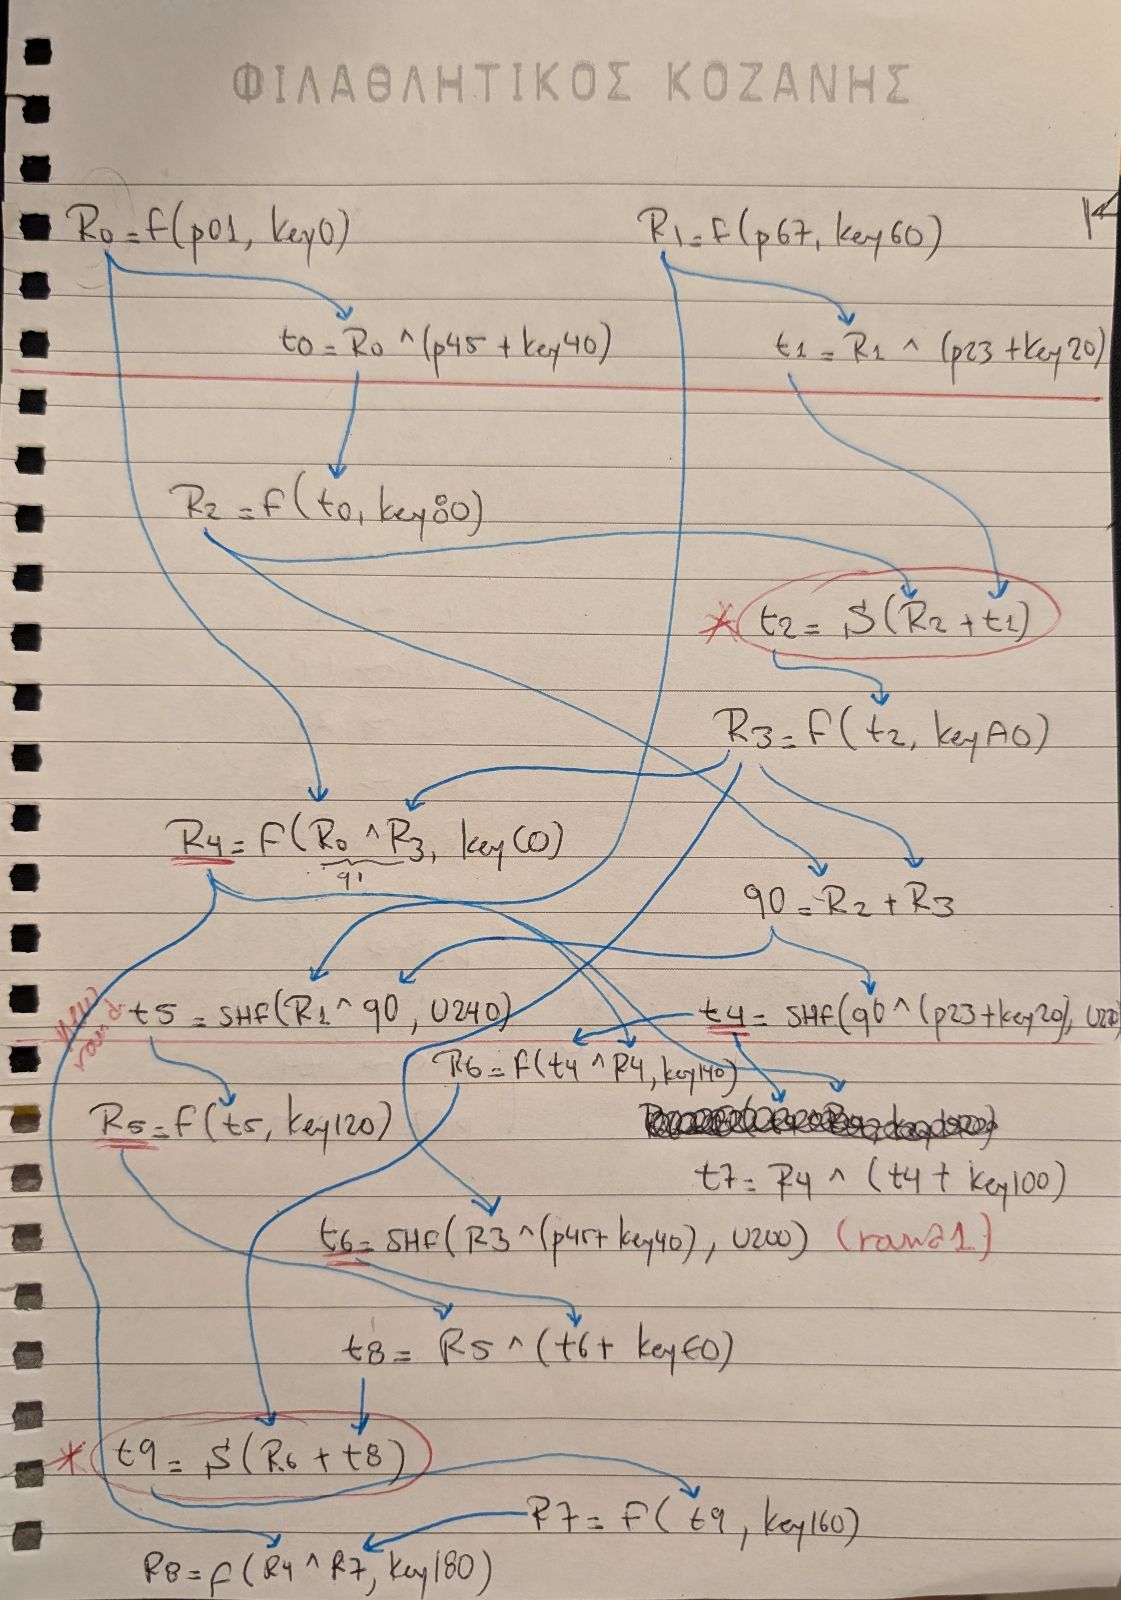 ΦΙΛΑΘΛΗΤΙΚΟΣ ΚΟΖΑΝΗΣ
R0 = f(p01, key0)
R1 = f(p67, key60)
t0 = R0 ^ (p45 + key40)
t1 = R1 ^ (p23 + key20)
R2 = f(t0, key80)
* t2 = S(R2 + t1)
R3 = f(t2, keyA0)
R4 = f(R0 ^ R3, keyC0)
q1
q0 = R2 + R3
t5 = SHF(R1 ^ q0, U240)
t4 = SHF(q0 ^ (p23 + key20), U220
R6 = f(t4 ^ R4, key140)
R5 = f(t5, key120)
t7 = R4 ^ (t4 + key100)
t6 = SHF(R3 ^ (p45 + key40), U200) (round 1)
t8 = R5 ^ (t6 + keyE0)
* t9 = S(R6 + t8)
R7 = f(t9, key160)
R8 = f(R4 ^ R7, key180)